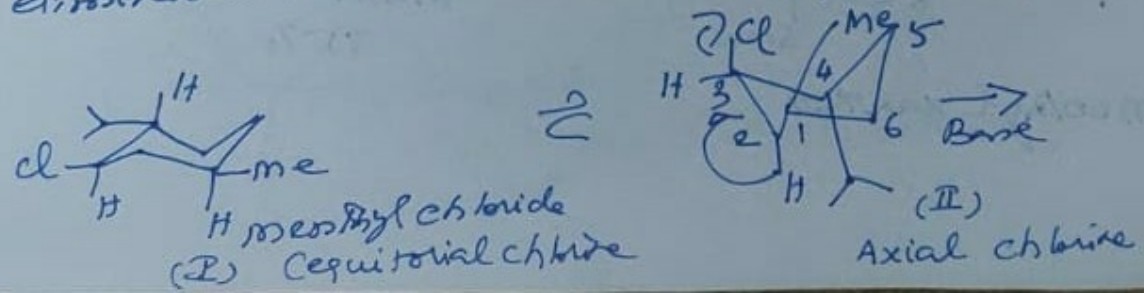 H
Cl
H
me
H menthyl chloride
(I) (equitorial chlorine
Cl
Me
5
H
3
4
2
1
6
H
⇌
Base
(II)
Axial chlorine